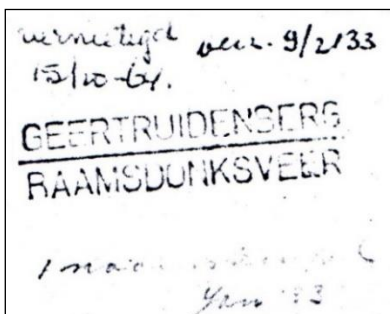 vernietigd verz. 9/2'33
15/10-64.
GEERTRUIDENBERG
RAAMSDONKSVEER
1